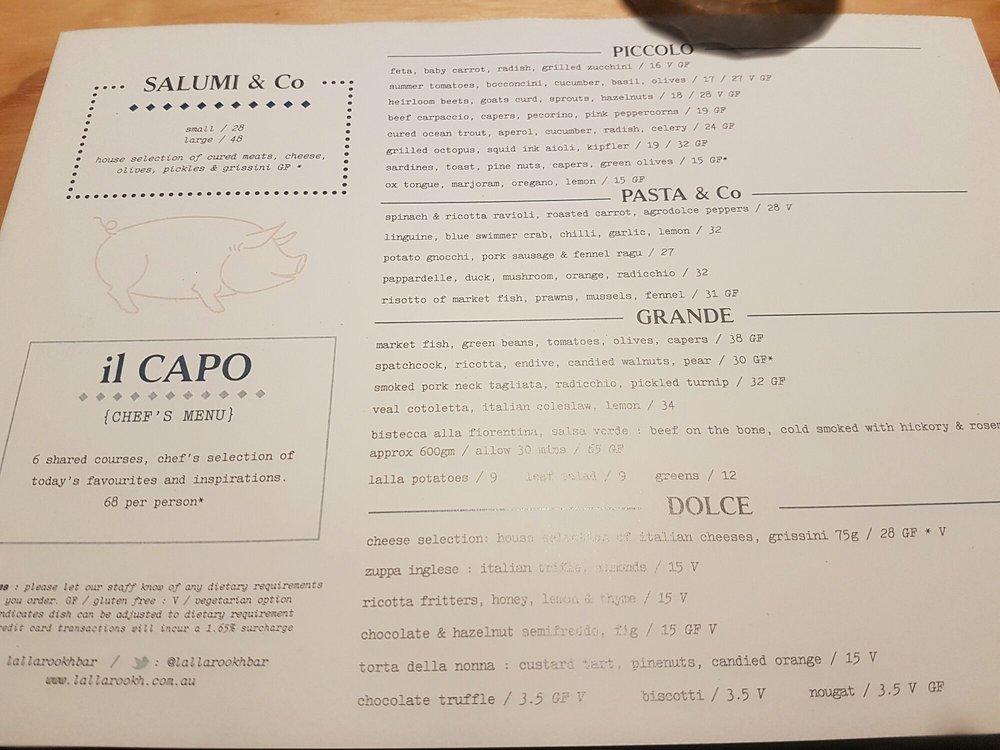 SALUMI & Co
small / 28
large / 48
house selection of cured meats, cheese,
olives, pickles & grissini GF *
il CAPO
{CHEF'S MENU}
6 shared courses, chef's selection of
today's favourites and inspirations.
68 per person*
: please let our staff know of any dietary requirements
you order. GF / gluten free : V / vegetarian option
indicates dish can be adjusted to dietary requirement
redit card transactions will incur a 1.65% surcharge
lallarookhbar / : @lallarookhbar
www.lallarookh.com.au
PICCOLO
feta, baby carrot, radish, grilled zucchini / 16 V GF
summer tomatoes, bocconcini, cucumber, basil, olives / 17 / 27 V GF
heirloom beets, goats curd, sprouts, hazelnuts / 18 / 28 V GF
beef carpaccio, capers, pecorino, pink peppercorns / 19 GF
cured ocean trout, aperol, cucumber, radish, celery / 24 GF
grilled octopus, squid ink aioli, kipfler / 19 / 32 GF
sardines, toast, pine nuts, capers, green olives / 15 GF*
ox tongue, marjoram, oregano, lemon / 15 GF
PASTA & Co
spinach & ricotta ravioli, roasted carrot, agrodolce peppers / 28 V
linguine, blue swimmer crab, chilli, garlic, lemon / 32
potato gnocchi, pork sausage & fennel ragu / 27
pappardelle, duck, mushroom, orange, radicchio / 32
risotto of market fish, prawns, mussels, fennel / 31 GF
GRANDE
market fish, green beans, tomatoes, olives, capers / 38 GF
spatchcock, ricotta, endive, candied walnuts, pear / 30 GF*
smoked pork neck tagliata, radicchio, pickled turnip / 32 GF
veal cotoletta, italian coleslaw, lemon / 34
bistecca alla fiorentina, salsa verde : beef on the bone, cold smoked with hickory & rosem
approx 600gm / allow 30 mins / 65 GF
lalla potatoes / 9 leaf salad / 9 greens / 12
DOLCE
cheese selection: house selection of italian cheeses, grissini 75g / 28 GF * V
zuppa inglese : italian trifle, almonds / 15 V
ricotta fritters, honey, lemon & thyme / 15 V
chocolate & hazelnut semifreddo, fig / 15 GF V
torta della nonna : custard tart, pinenuts, candied orange / 15 V
chocolate truffle / 3.5 GF V biscotti / 3.5 V nougat / 3.5 V GF